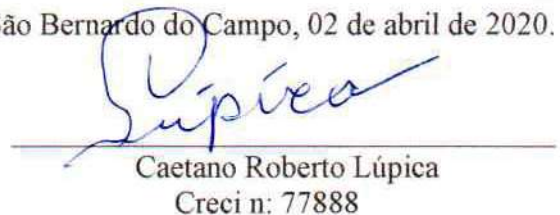 ão Bernardo do Campo, 02 de abril de 2020.
Lúpica
Caetano Roberto Lúpica
Creci n: 77888